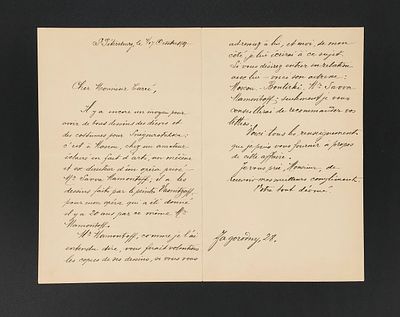 St Pétersbourg, le 4/17 Octobre
Cher Monsieur Carré,
Il y a encore un moyen pour
avoir de bons dessins des décors et
des costumes pour Snégourotschka:
c'est à Moscou, chez un amateur
en fait d'arts, un mécène
et ex directeur d'un opéra privé,
Mr Savva Mamontoff, il a les
dessins faits par le peintre Vasnetzoff,
pour mon opéra qui a été donné
il y a 20 ans par ce même Mr
Mamontoff.
Mr Mamontoff, comme je l'ai
entendu dire, vous ferait volontiers
les copies de ses dessins, si vous vous
adressez à lui, et moi, de mon
côté, je lui écrirai à ce sujet.
Si vous désirez entrer en relation
avec lui voici son adresse:
Moscou, Boutirki, Mr Savva
Mamontoff; seulement je vous
conseillerais de recommander vos
lettres.
Voici tous les renseignements
que je puis vous fournir à propos
de cette affaire.
Je vous prie, Monsieur, de
recevoir mes meilleurs compliments.
Votre tout dévoué
Zagorodny, 28.